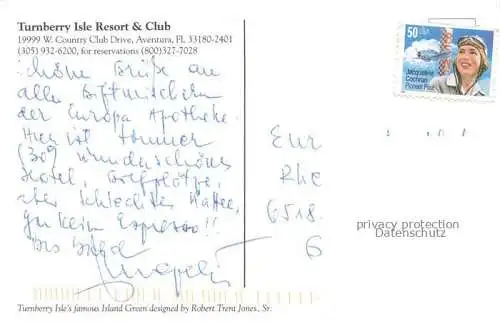 Turnberry Isle Resort & Club
19999 W. Country Club Drive, Aventura, FL 33180-2401
(305) 932-6200, for reservations (800)327-7028
schöne Grüße an
alle Giftmischer
der Europa Apotheke.
Hier ist Sommer
(30°) wunderschönes
Hotel, Golfplätze,
aber schlechter Kaffee,
gar kein Espresso!!
Bis bald
50 USA
Jacqueline
Cochran
Pioneer Pilot
Eur
Rhe
6518
6
privacy protection
Datenschutz
Turnberry Isle's famous Island Green designed by Robert Trent Jones, Sr.